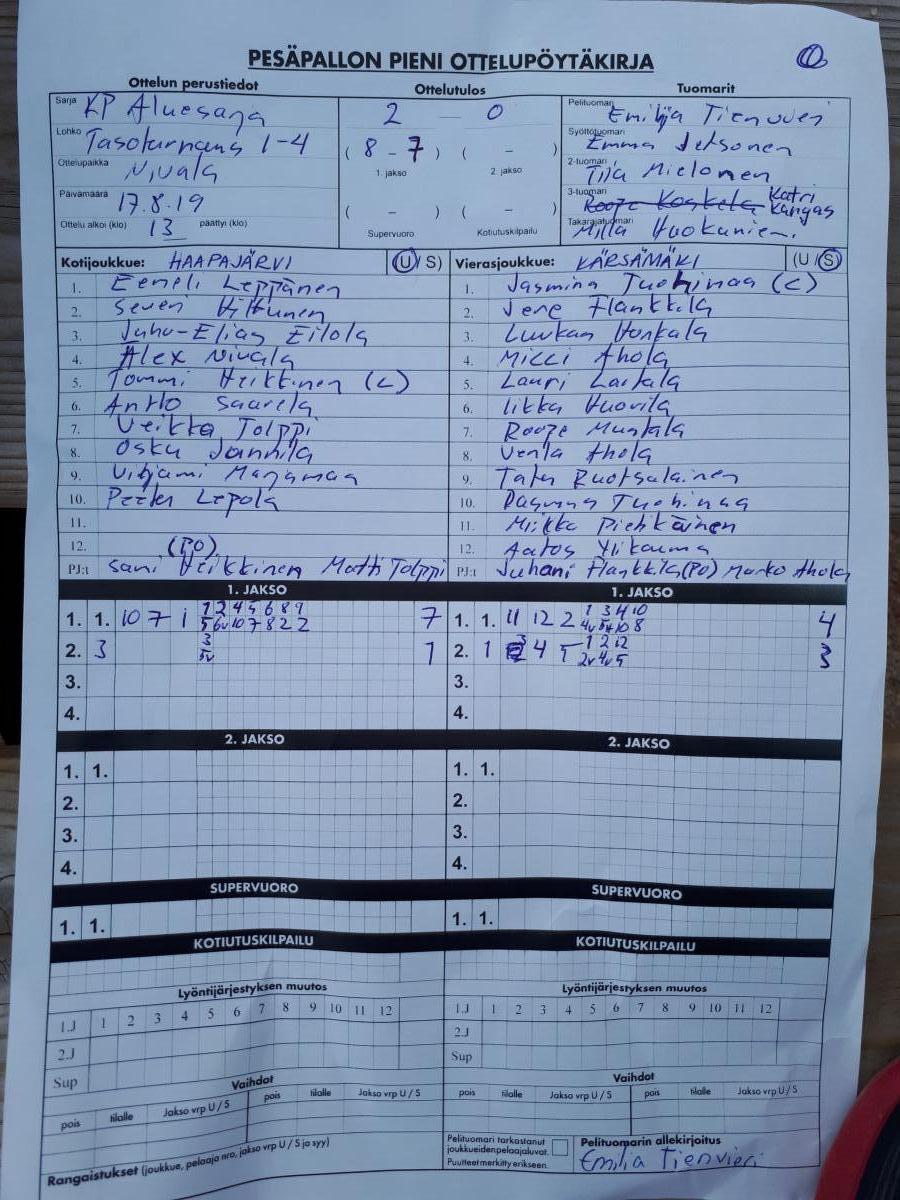 PESÄPALLON PIENI OTTELUPÖYTÄKIRJA
Ottelun perustiedot Ottelutulos Tuomarit
Sarja KP Aluesarja
Lohko Tasoturnaus 1-4
Ottelupaikka Nivala
Päivämäärä 17.8.19
Ottelu alkoi (klo) 13 päättyi (klo)
2 — 0
( 8 - 7 ) ( - )
1. jakso 2. jakso
( - ) ( - )
Supervuoro Kotiutuskilpailu
Pelituomari Emilia Tienvieri
Syöttötuomari Emma
2-tuomari Tiia Mielonen
3-tuomari Roope Koskela Katri Kangas
Takarajatuomari Milla Huokuniemi
Kotijoukkue: HAAPAJÄRVI (U / S)
1. Eemeli Leppänen
2. Severi Hiltunen
3. Juho-Elias Eilola
4. Alex Nivala
5. Tommi Heikkinen (C)
6. Antto Saarela
7. Veikka Tolppi
8. Osku Jannila
9. Viljami Marjamaa
10. Peetu Lepola
11.
12. (PO)
PJ:t Sani Heikkinen Matti Tolppi
Vierasjoukkue: KÄRSÄMÄKI (U / S)
1. Jasmina Tuohimaa (C)
2. Jere Flankkila
3. Luukas Honkala
4. Milli Ahola
5. Lauri Laitala
6. Iikka Huovila
7. Roope Mustola
8. Venla Ahola
9. Tatu Ruotsalainen
10. Dagmna Tuohimaa
11. Miikka Piehkäinen
12. Aatos Ylikauma
PJ:t Juhani Flankkila (PO) Marko Ahola
1. JAKSO
1. 1. 10 7 1 1 2 4 5 6 8 9 7
5 6v 10 7 8 2 2
2. 3 3 1
5v
3.
4.
1. JAKSO
1. 1. 11 12 2 1 3 4 10 4
4v 5v 10 8
2. 1 4 5 1 2 12 3
2v 4v 5
3.
4.
2. JAKSO
1. 1.
2.
3.
4.
2. JAKSO
1. 1.
2.
3.
4.
SUPERVUORO
1. 1.
SUPERVUORO
1. 1.
KOTIUTUSKILPAILU
KOTIUTUSKILPAILU
Lyöntijärjestyksen muutos
1.J 1 2 3 4 5 6 7 8 9 10 11 12
2.J
Sup
Lyöntijärjestyksen muutos
1.J 1 2 3 4 5 6 7 8 9 10 11 12
2.J
Sup
Vaihdot
pois tilalle Jakso vrp U / S pois tilalle Jakso vrp U / S
Vaihdot
pois tilalle Jakso vrp U / S pois tilalle Jakso vrp U / S
Rangaistukset (joukkue, pelaaja nro, jakso vrp U / S ja syy)
Pelituomari tarkastanut
joukkueiden pelaajaluvat.
Puutteet merkitty erikseen.
Pelituomarin allekirjoitus
Emilia Tienvieri